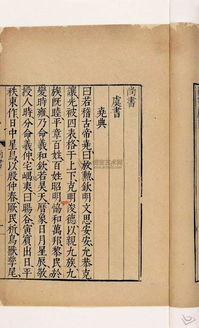 尚書
虞書
堯典
曰若稽古帝堯曰放勲欽明文思安安允恭克
讓光被四表格于上下克明俊德以親九族九
族既睦平章百姓百姓昭明協和萬邦黎民於
變時雍乃命羲和欽若昊天曆象日月星辰敬
授人時分命羲仲宅嵎夷曰暘谷寅賓出日平
秩東作日中星鳥以殷仲春厥民析鳥獸孳尾